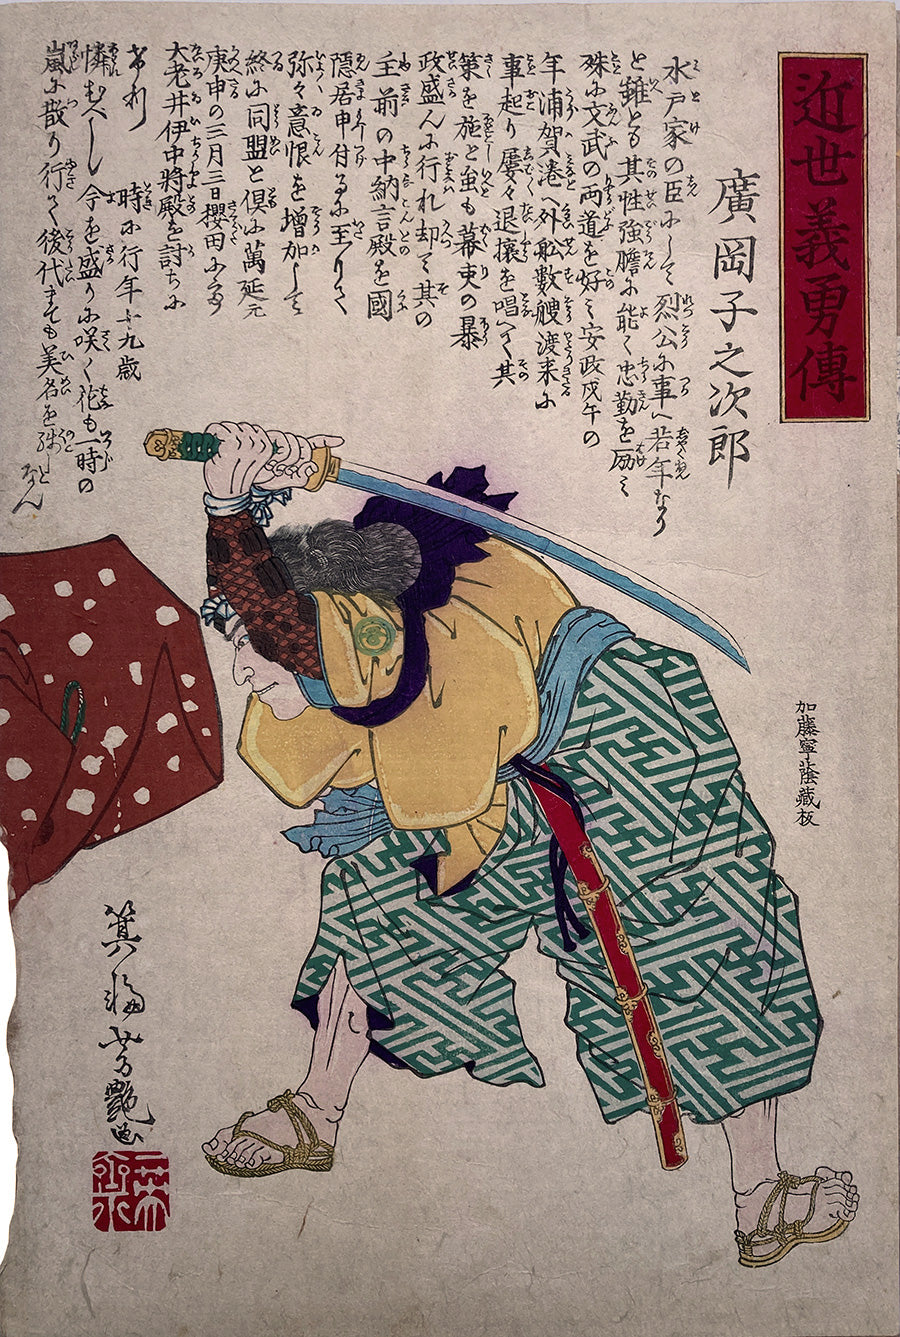 近世義勇傳
廣岡子之次郎
水戸家の臣にして烈公に事へ若年なり
と雖とも其性強膽に能く忠勤を励み
殊に文武の両道を好み安政戊午の
年浦賀港へ外舩數艘渡来に
事起り屡々退攘を唱へて其
策を施と虽も幕吏の暴
政盛んに行れ却て其の
主前の中納言殿を國
隠居申付るに至りて
弥々意恨を増加して
終に同盟と倶に萬延元
庚申の三月三日櫻田に於
大老井伊中将殿を討ちに
けり 時に行年十九歳
憐むべし今を盛りに咲く花も一時の
嵐に散り行く後代まても美名を残しと
なん
加藤寧蔭藏板
芳艶画